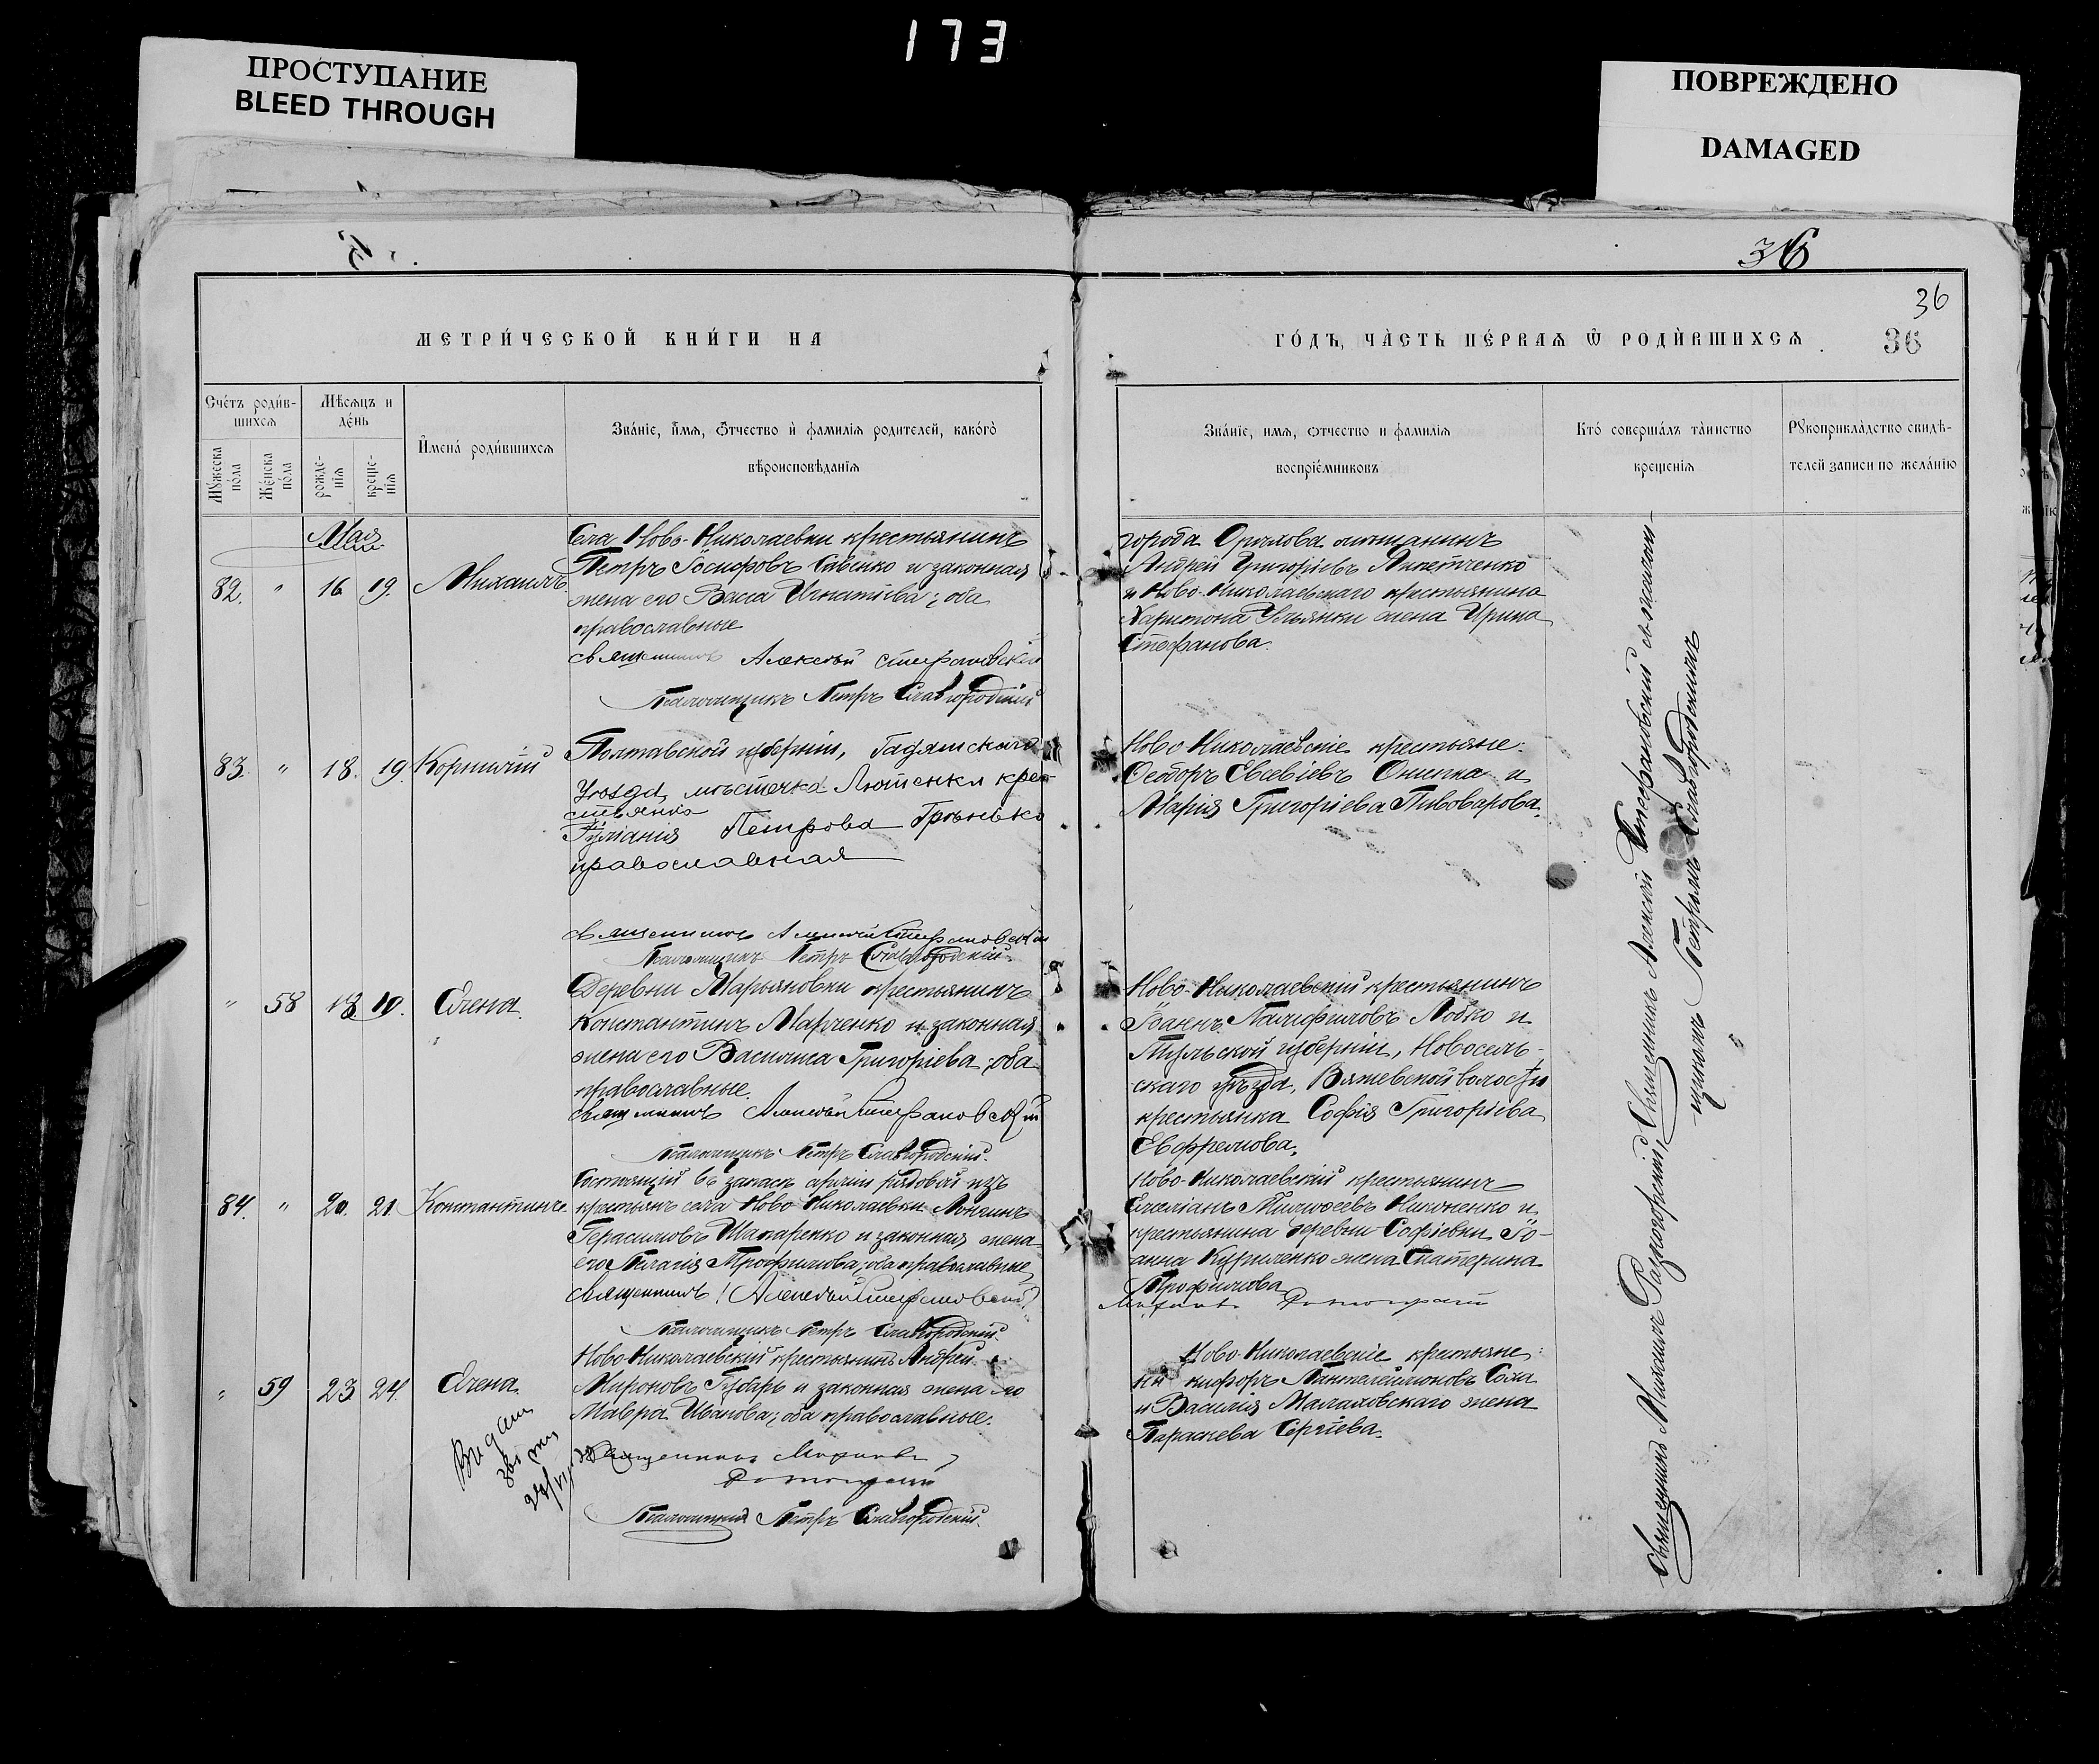 173
ПРОСТУПАНИЕ
BLEED THROUGH
ПОВРЕЖДЕНО
DAMAGED
36
36
МЕТРИ́ЧЕСКОЙ КНИ́ГИ НА
ГО́ДЪ, ЧА̀СТЬ ПЕ́РВАѦ Ѿ РОДИ́ВШИХСѦ
36
Сче́тъ роди́в-
шихсѧ
Мѣ́сѧцъ и
де́нь
Мꙋ́жеска
по́ла
Же́нска
по́ла
рожде-
нїѧ
креще-
нїѧ
И҆мена̀ роди́вшихсѧ
Зва́нїе, и҆́мѧ, ѻ҆́тчество и҆ фами́лїѧ роди́телей, како́гѡ
вѣроисповѣ́данїѧ
Зва́нїе, имѧ, ѻтчество и фами́лїѧ
воспрїе́мниковъ
Кто́ соверша́лъ та́инство
креще́нїѧ
Рꙋкоприкла́дство свидѣ́-
телей записи по жела́нїю
Мая
82. " 16 19. Михаилъ
Села Ново-Николаевки крестьянинъ
Петръ Іосифовъ Савенко и законная
жена его Васса Игнатіева; оба
православные
священникъ Алексѣй Стефановскій
Псаломщикъ Петръ Славгородскій
города Орѣхова мѣщанинъ
Андрей Григоріевъ
и Ново-Николаевскаго крестьянина
Харитона Ульянки жена Ирина
Стефанова.
83. " 18. 19. Корнилій
Полтавской губерніи, Гадячскаго
Уѣзда, мѣстечка Лютенки кре-
стьянка
Іуліанія Петрова
православная
священникъ Алексѣй Стефановскій
Псаломщикъ Петръ Славгородскій.
Ново-Николаевскіе крестьяне:
Ѳеодоръ Евсевіевъ Онипка и
Марія Григоріева Пивоварова.
" 58 18. 19. Елена.
Деревни Марьяновки крестьянинъ
Константинъ Марченко и законная
жена его Василиса Григоріева; оба
православные.
Священникъ Алексѣй Стефановскій
Псаломщикъ Петръ Славгородскій.
Ново-Николаевскій крестьянинъ
Іоаннъ Памфиловъ Лобко и
Тульской губерніи, Новосель-
скаго уѣзда, волости
крестьянка Софія Григоріева
Евфремова.
84. " 20. 21. Константинъ.
Состоящій въ запасѣ арміи рядовой изъ
крестьянъ села Ново-Николаевки Лонгинъ
Герасимовъ Шапаренко и законная жена
его Пелагія Трофимова; оба православные
священникъ Алексѣй Стефановскій
Псаломщикъ Петръ Славгородскій.
Ново-Николаевскій крестьянинъ
Емеліанъ Тимоѳеевъ Никоненко и
крестьянина деревни Софіевки Іо-
анна Куриленко жена Екатерина
Трофимова
" 59 23 24. Елена.
Ново-Николаевскій крестьянинъ Андрей
Мироновъ Губарь и законная жена его
Мавра Иванова; оба православные.
Священникъ Михаилъ
Псаломщикъ Петръ Славгородскій.
Ново-Николаевскіе крестьяне:
Никифоръ Пантелеймоновъ Соха
и Василія Малаховскаго жена
Параскева Сергіева.
Священникъ Михаилъ
Священникъ Алексѣй Стефановскій съ псалом-
щикомъ Петромъ Славгородскимъ